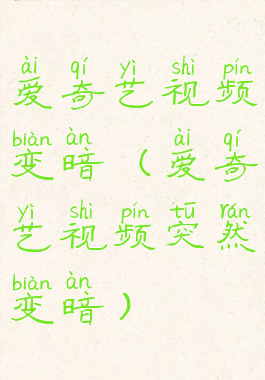 ài qí yì shì pín
爱奇艺视频
biàn àn ài qí
变暗（爱奇
yì shì pín tū rán
艺视频突然
biàn àn
变暗）